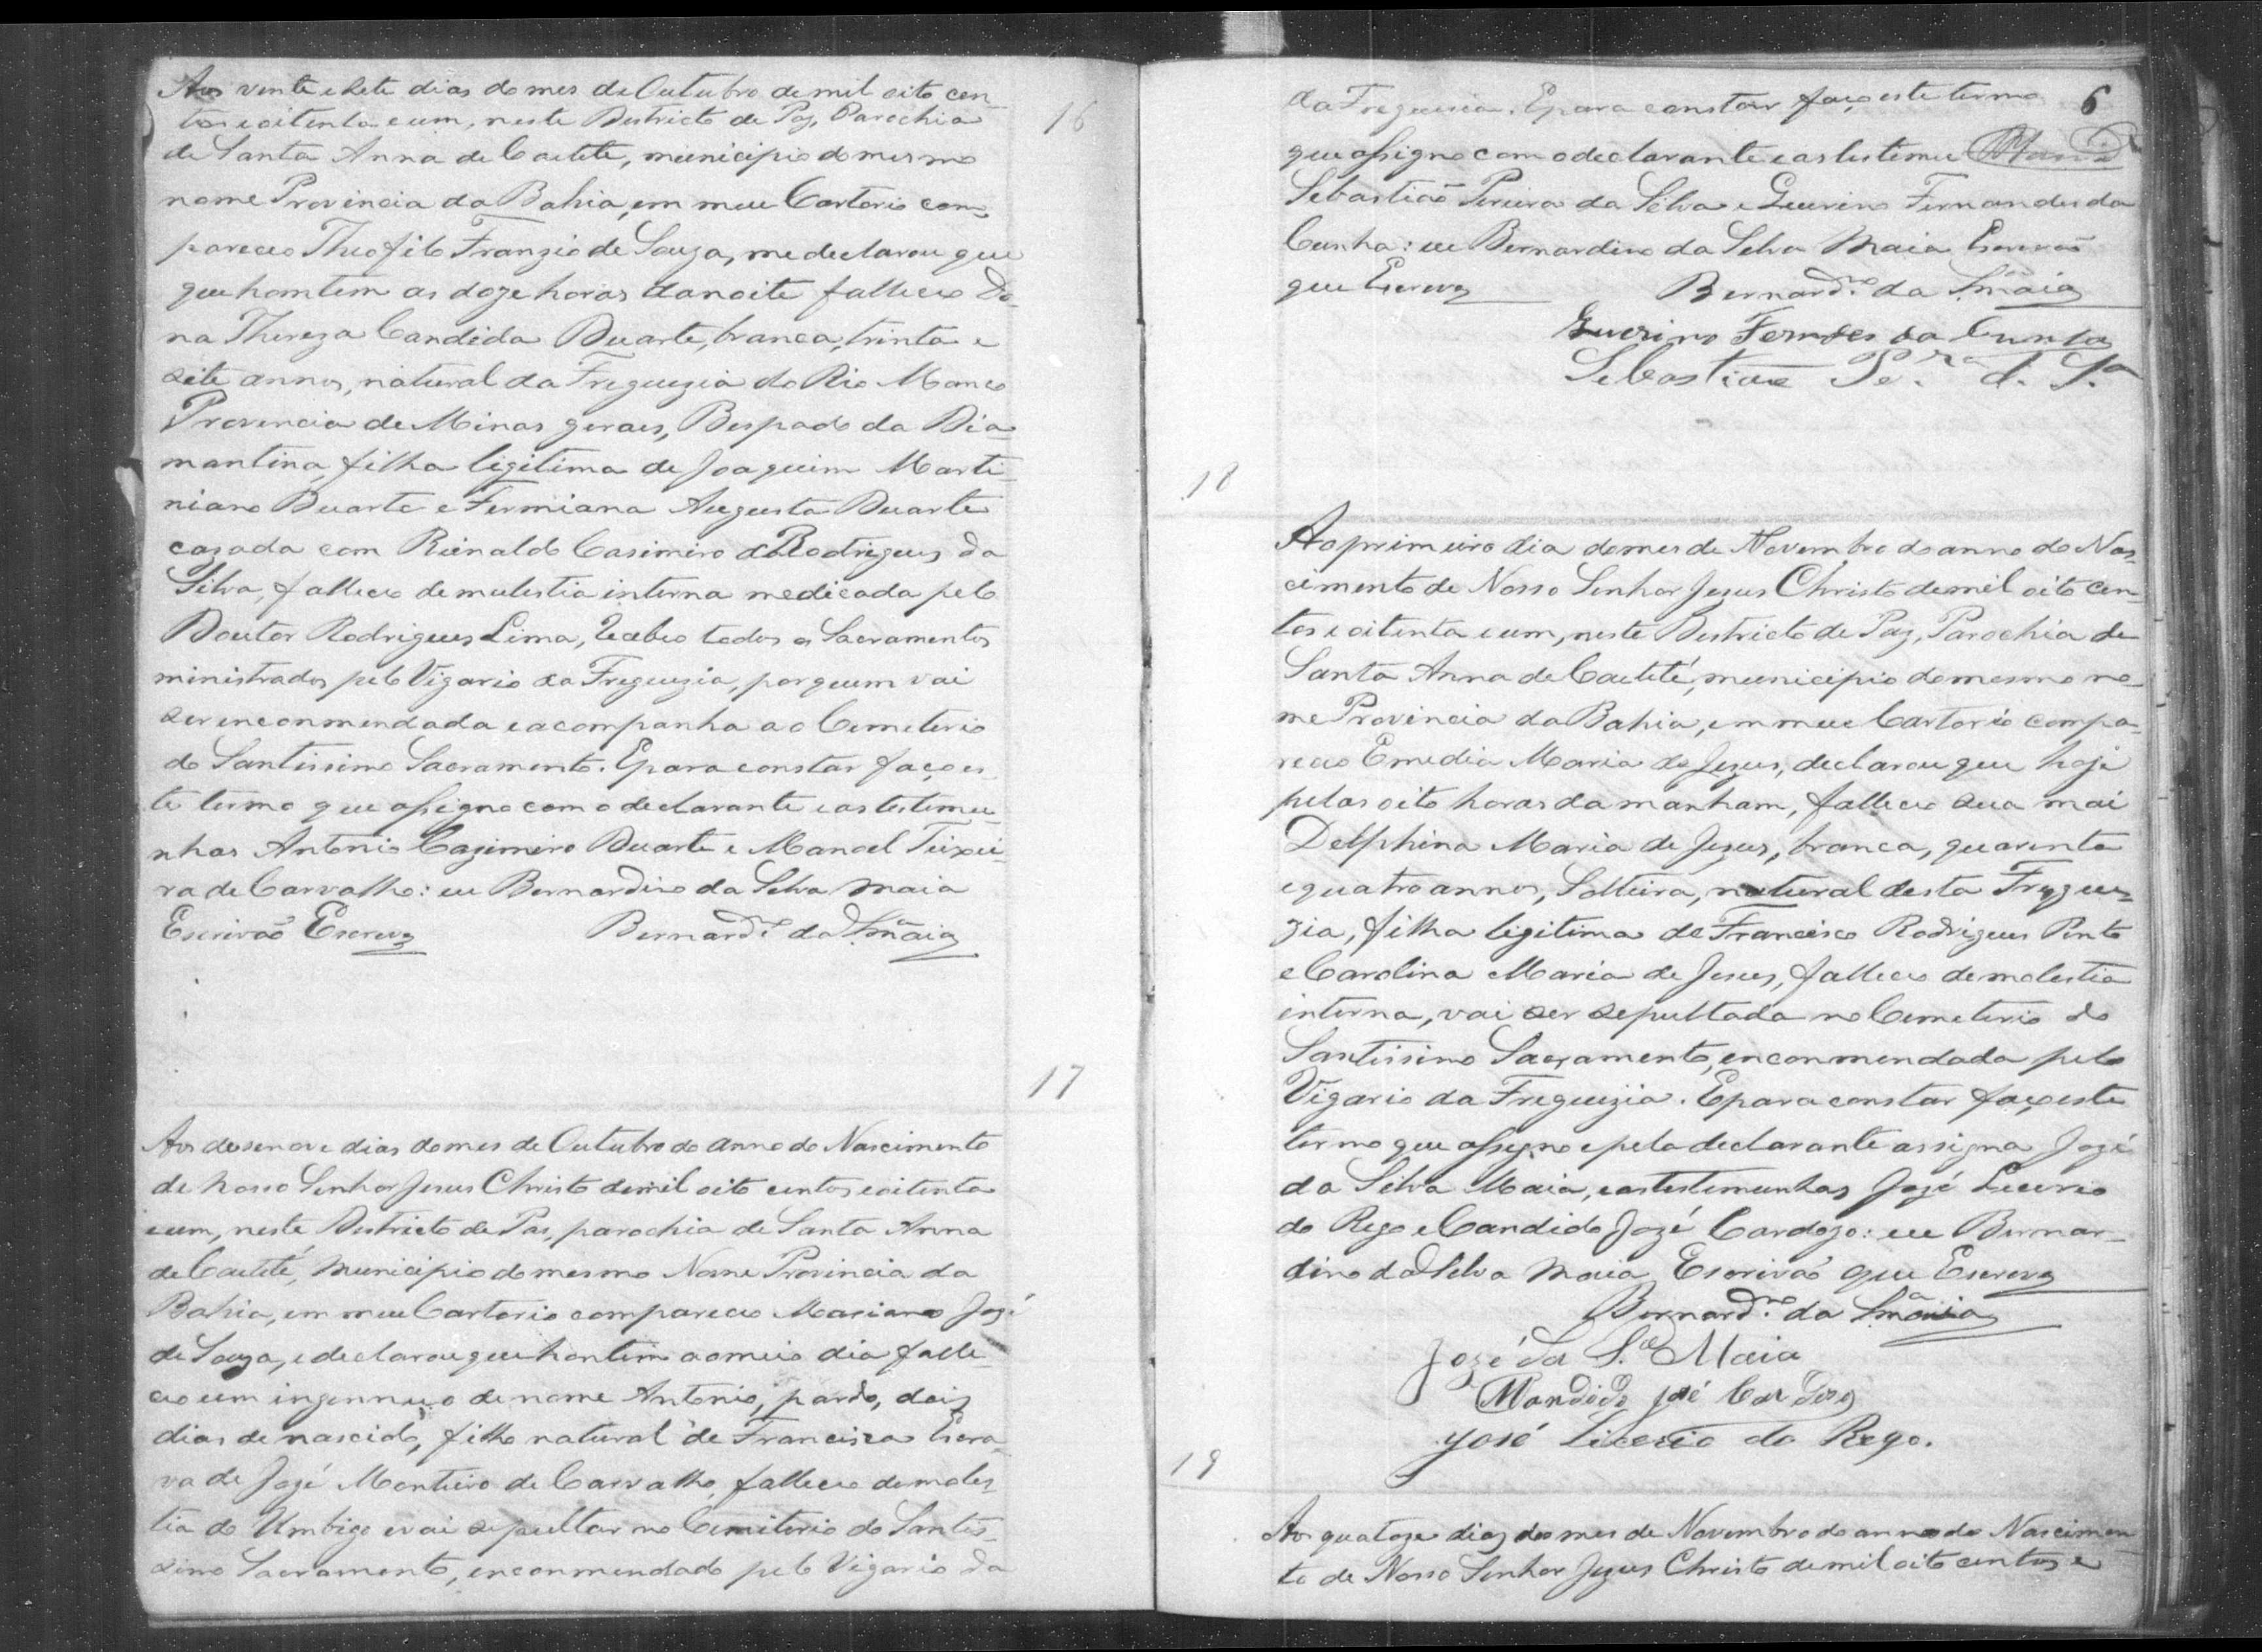 Aos vinte e sete dias do mes de Outubro de mil oito cen-
tos e oitenta e um, neste Districto de Paz, Parochia
16
de Santa Anna de Caetité, municipio do mesmo
nome Provincia da Bahia, em meu Cartorio com-
pareceo Theofilo Franzio de Souza, me declarou que
que hontem as doze horas da noite falleceo Do-
na Thereza Candida Duarte, branca, trinta e
sete annos, natural da Freguezia do Rio Manco
Provencia de Minas geraes, Bispado da Dia-
mantina, filha ligitima de Joaquim Marti-
niano Duarte e Firmiana Augusta Duarte
cazada com Rienaldo Casimiro Rodrigues da
Silva, falleceo de mulestia interna medicada pelo
Doutor Rodrigues Lima, recebeo todos os Sacramentos
ministrados pelo Vigario da Freguezia, por quem vai
ser enconmendada e acompanha ao Cemeterio
do Santissimo Sacramento. E para constar faço es-
te termo que assigno com o declarante e as testemu-
nhas Antonio Cazimiro Duarte e Manoel Teixei-
ra de Carvalho: eu Bernardino da Selva Maia
Escrivaõ Escrevy Bernard.no da S.a Maia
17
Aos desenove dias do mes de Outubro do anno do Nascimento
de nosso Senhor Jesus Christo de mil oito centos e oitenta
e um, neste Districto de Pas, parochia de Santa Anna
de Caetité, Municipio do mesmo Nome Provincia da
Bahia, em meu Cartorio compareceo Mariano Jozé
de Souza, e declarou que hontem ao meio dia falle-
ceo um ingennuo de nome Antonio, pardo, dois
dias de nascido, filho natural de Francisca Escra-
va de Jozé Monteiro de Carvalho, falleceo de moles-
tia do Umbigo e vai sepultar no Cemiterio do Santis-
simo Sacramento, enconmendado pelo Vigario da
6
da Freguesia. E para constar faço este termo
que assigno com o declarante e as testemu
Sebastiaõ Pereira da Silva e Guerino Fernandes da
Cunha: eu Bernardino da Selva Maia Escrivaõ
que Escrevy Bernard.no da S.a Maia
Guerino Ferndes da Cunha
Sebastiao Pe.ra d. S.a
18
Ao primeiro dia do mes de Novembro do anno do Nas-
cimento de Nosso Senhor Jezus Christo de mil oito cen-
tos e oitenta e um, neste Districto de Paz, Parochia de
Santa Anna de Caetité, municipio do mesmo no-
me Provincia da Bahia, em meu Cartorio compa-
receo Emedia Maria de Jezus, declarou que hoje
pelas oito horas da manham, falleceo sua mai
Delphina Maria de Jezus, branca, quarenta
e quatro annos, Solteira, natural desta Fregue-
zia, filha ligitima de Francisco Rodrigues Pinto
e Carolina Maria de Jesus, falleceo de molestia
interna, vai ser sepultada no Cemeterio do
Santissimo Sacramento, enconmendada pelo
Vigario da Freguizia. E para constar faço este
termo que assigno e pela declarante assigna Jozé
da Silva Maia, e as testemunhas Jozé Lucerio
do Rego e Candido Jozé Cardozo: eu Bernar-
dino da Selva Maia Escrivaõ que Escrevy
Bernard.no da S.a Maia
Jozé da S.a Maia
Candido José Cardozo
José Licerio do Rego.
19
Aos quatoze dias do mes de Novembro do anno do Nascimen-
to de Nosso Senhor Jezus Christo de mil oito centos e